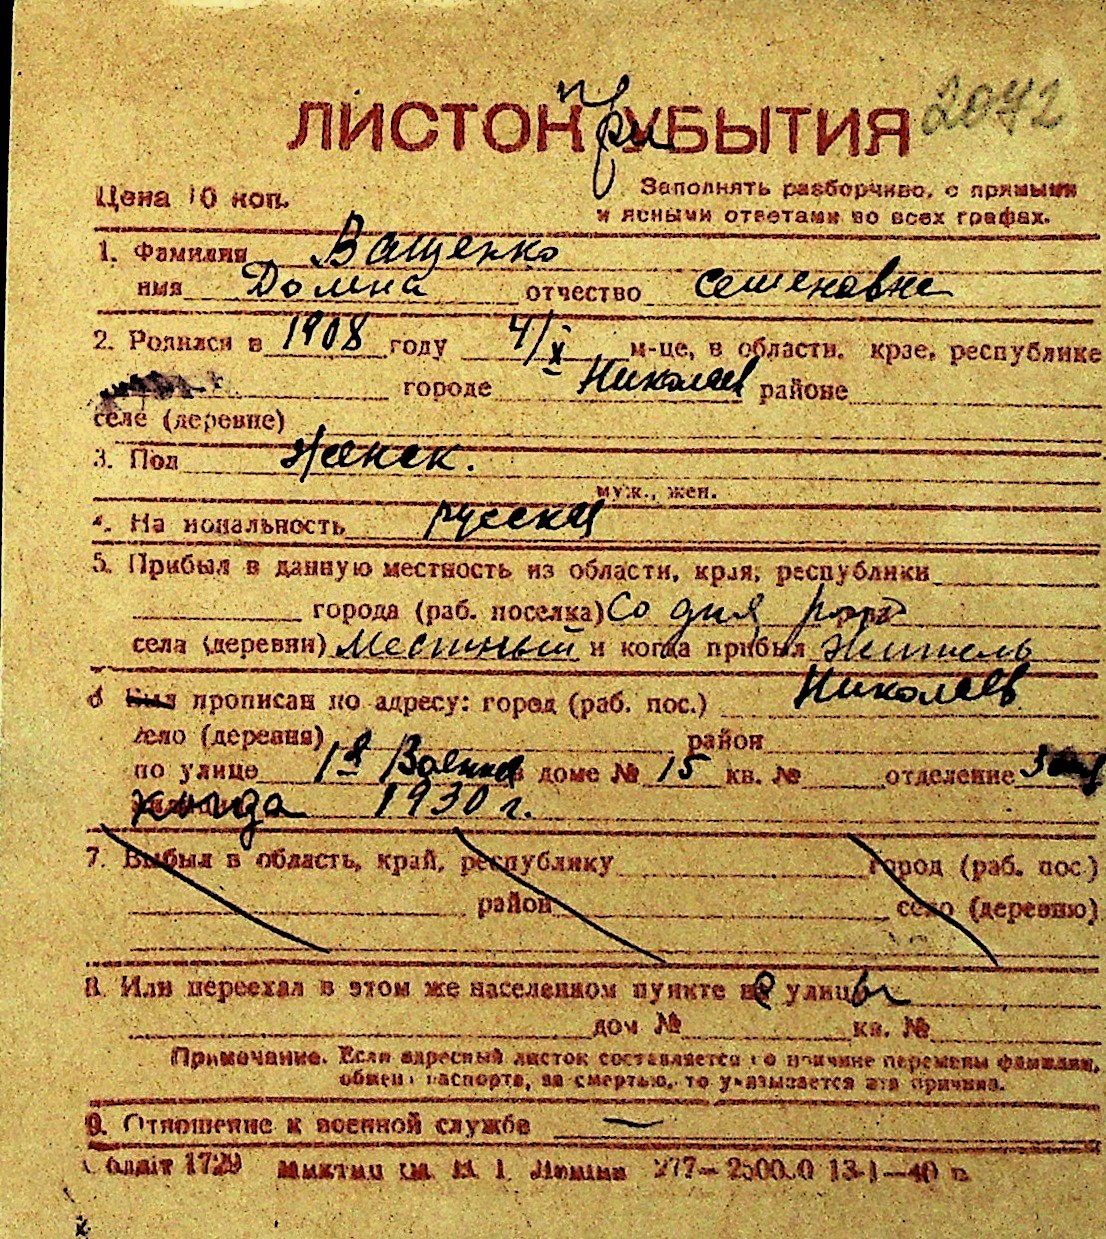 ЛИСТОК при УБЫТИЯ 2072
Цена 10 коп. Заполнять разборчиво, с прямыми
и ясными ответами во всех графах.
1. Фамилия Ващенко
имя Домна отчество Семеновна
2. Родился в 1908 году 4/X м-це, в области, крае, республике
городе Николаев районе
селе (деревне)
3. Пол женск.
муж., жен.
4. Национальность русская
5. Прибыл в данную местность из области, края, республики
города (раб. поселка) Со дня рожд
села (деревни) местный и когда прибыл житель
6 Был прописан по адресу: город (раб. пос.) Николаев
село (деревня) район
по улице 1я Военная в доме № 15 кв. № отделение 3
1930 г.
7. Выбыл в область, край, республику город (раб. пос.)
район село (деревню)
8. Или переехал в этом же населенном пункте улицы
дом № кв. №
Примечание. Если адресный листок составляется по причине перемены фамилии,
обмена паспорта, за смертью, то указывается эта причина.
9. Отношение к военной службе —
Облліт 1729 им. Леніна 277— 13-1—40 р.